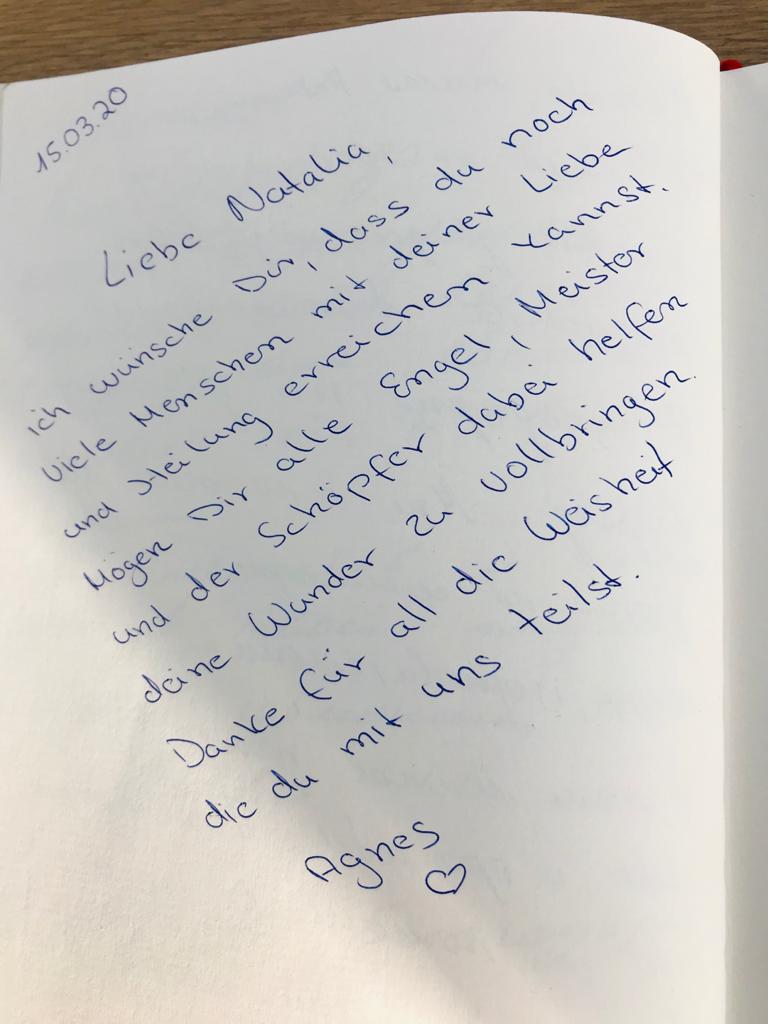 15.03.20
Liebe Natalia,
ich wünsche Dir, dass du noch
viele Menschen mit deiner Liebe
und Heilung erreichen kannst.
Mögen Dir alle Engel, Meister
und der Schöpfer dabei helfen
deine Wunder zu vollbringen.
Danke für all die Weisheit
die du mit uns teilst.
Agnes
♡